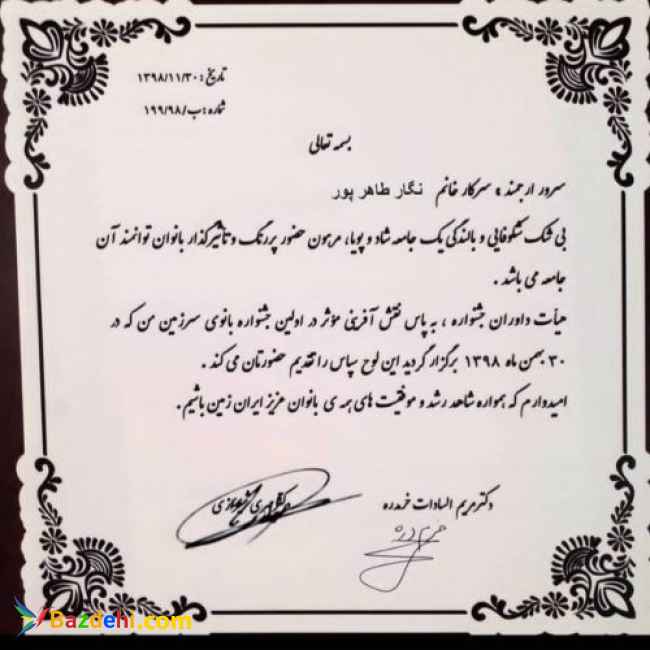 تاریخ: ۱۳۹۸/۱۱/۳۰
شماره: ب/۱۹۹/۹۸
بسمه تعالی
سرور ارجمند، سرکار خانم نگار طاهر پور
بی شک شکوفایی و بالندگی یک جامعه شاد و پویا، مرهون حضور پررنگ و تأثیرگذار بانوان توانمند آن
جامعه می باشد.
هیأت داوران جشنواره، به پاس نقش آفرینی مؤثر در اولین جشنواره بانوی سرزمین من که در
۳۰ بهمن ماه ۱۳۹۸ برگزار گردید این لوح سپاس را تقدیم حضورتان می کند.
امیدوارم که همواره شاهد رشد و موفقیت های همه ی بانوان عزیز ایران زمین باشیم.
دکتر مریم السادات خرمدره
Bazdehi.com